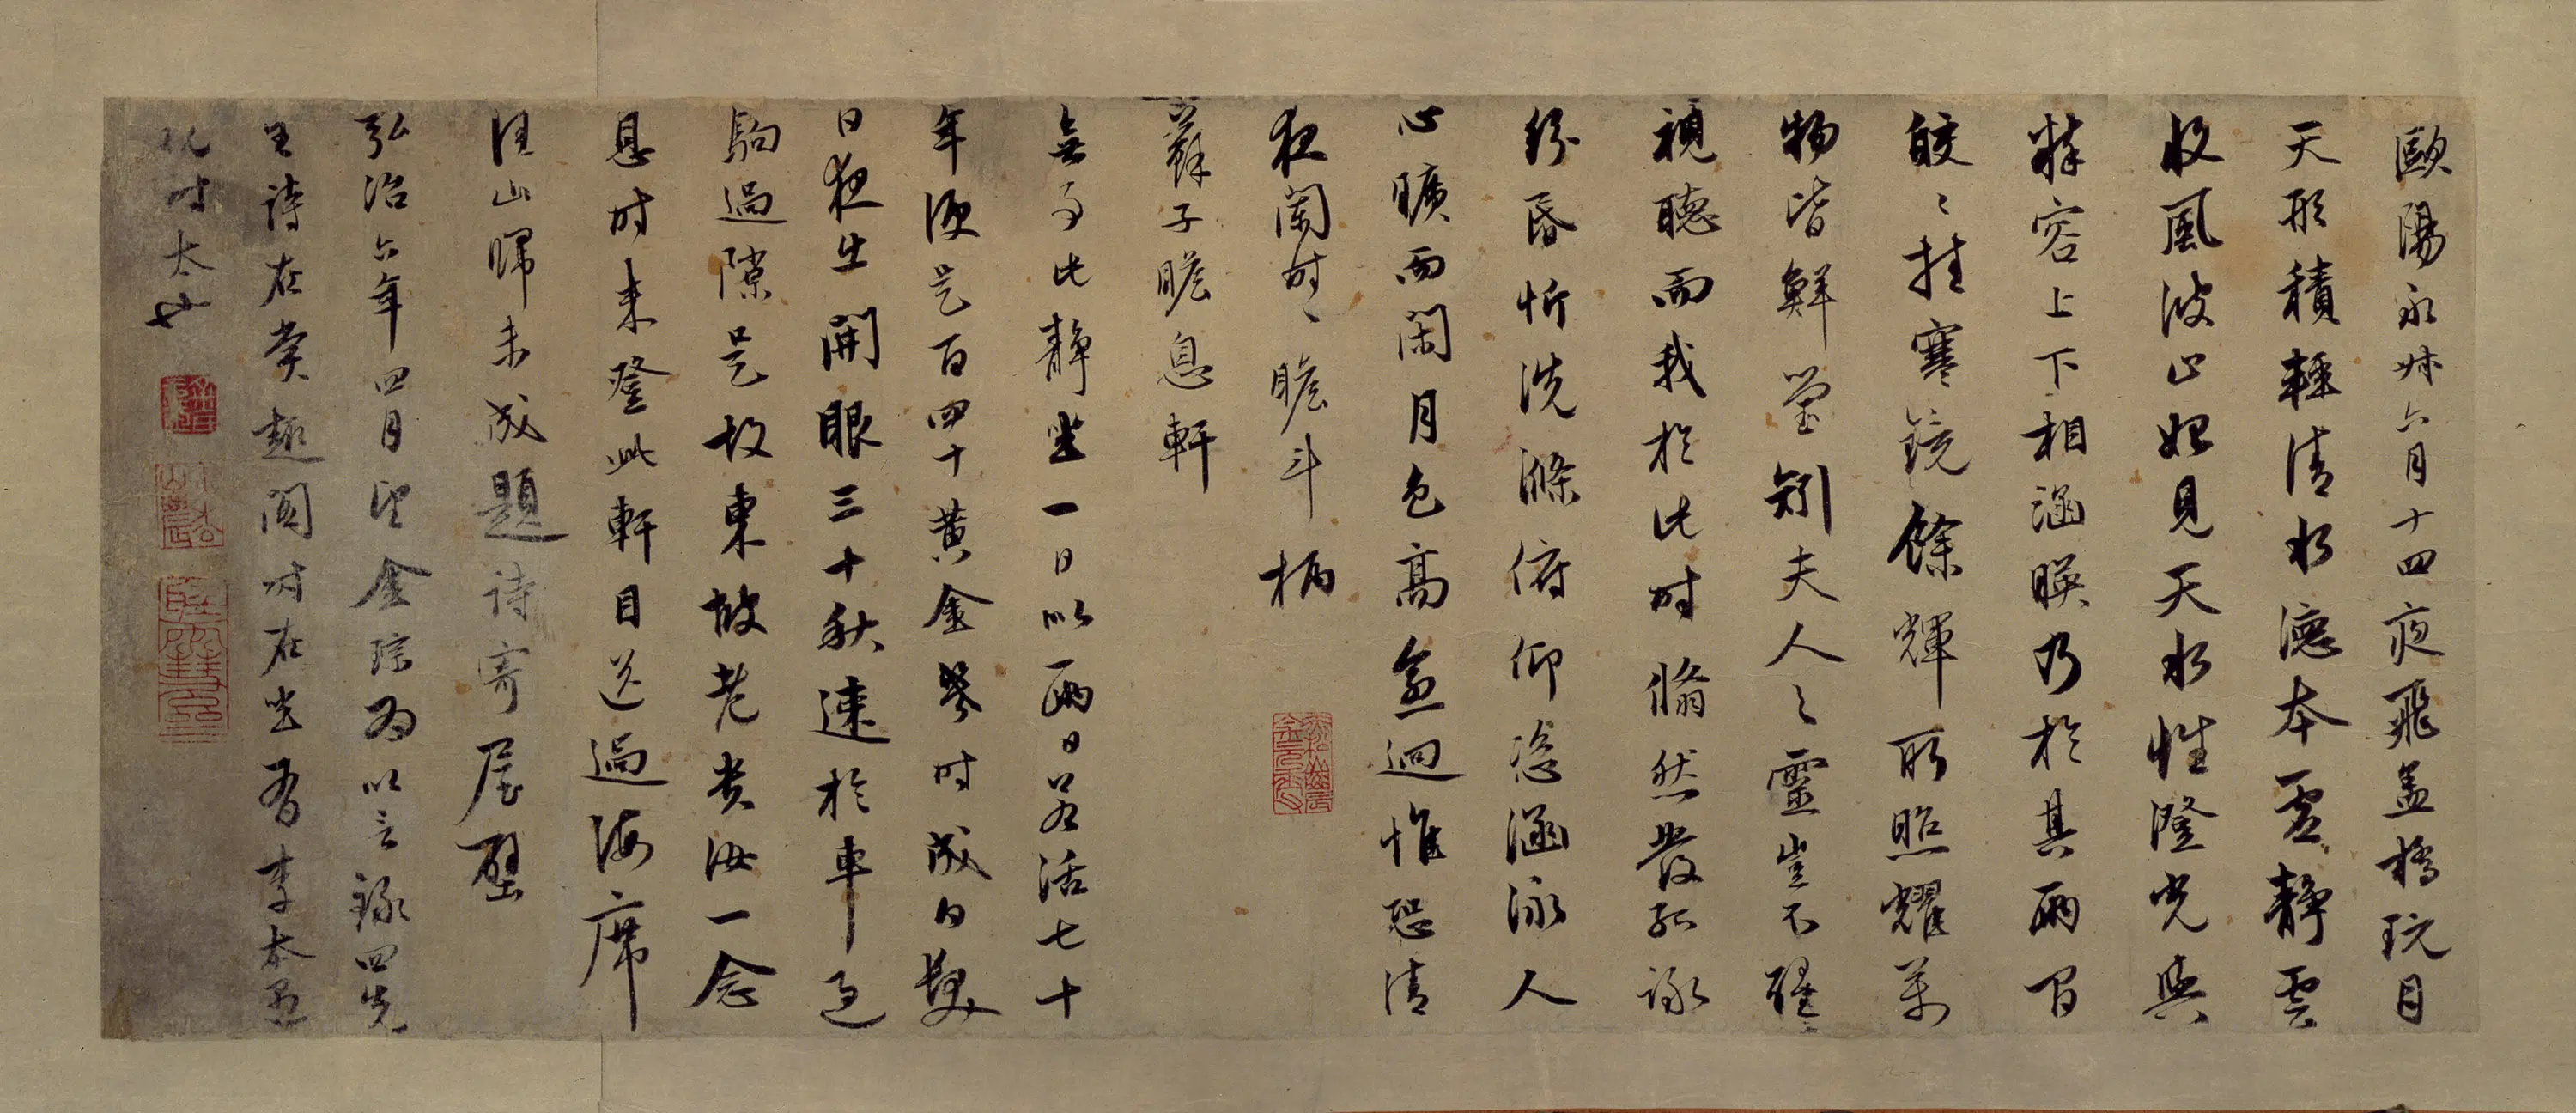 歐陽永叔六月十四夜飛蓋橋玩月
天形積輕清水德本虛靜雲
收風波止始見天水性澄光與
粹容上下相涵暎乃於其兩間
皎〻挂寒鏡餘輝所照耀萬
物皆鮮瑩矧夫人之靈豈不醒
視聽而我於此時翛然發孤詠
紛昏忻洗滌俯仰恣涵泳人
心曠而閑月色高愈迥惟恐清
夜闌時〻瞻斗柄
蘇子瞻息軒
無事此靜坐一日似兩日若活七十
年便是百四十黃金幾時成白髮
日夜出開眼三十秋速於車過
駒過隙是故東坡老貴汝一念
息時來登此軒目送過海席
家山歸未成題詩寄屋壁
弘治六年四月望金琮為以言錄四先
生詩在賞趣閣時在坐者李太
祝時太也